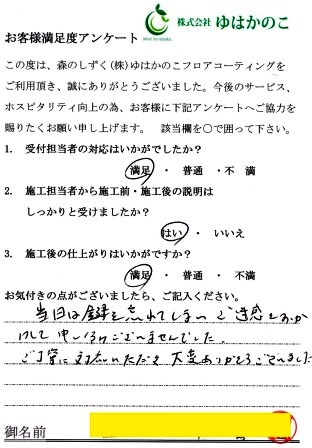 株式会社 ゆはかのこ
お客様満足度アンケート
この度は、森のしずく(株)ゆはかのこフロアコーティングを
ご利用頂き、誠にありがとうございました。今後のサービス、
ホスピタリティ向上の為、お客様に下記アンケートへご協力を
賜りたくお願い申し上げます。 該当欄を○で囲って下さい。
1. 受付担当者の対応はいかがでしたか?
満足 ・ 普通 ・不 満
2. 施工担当者から施工前・施工後の説明は
しっかりと受けましたか?
はい ・ いいえ
3. 施工後の仕上がりはいかがですか?
満足 ・ 普通 ・ 不満
お気付きの点がございましたら、ご記入ください。
当日は鍵を忘れてしまい ご迷惑をおか
けして申し訳ございませんでした。
ご丁寧に対応いただき 大変ありがとうございました
御名前